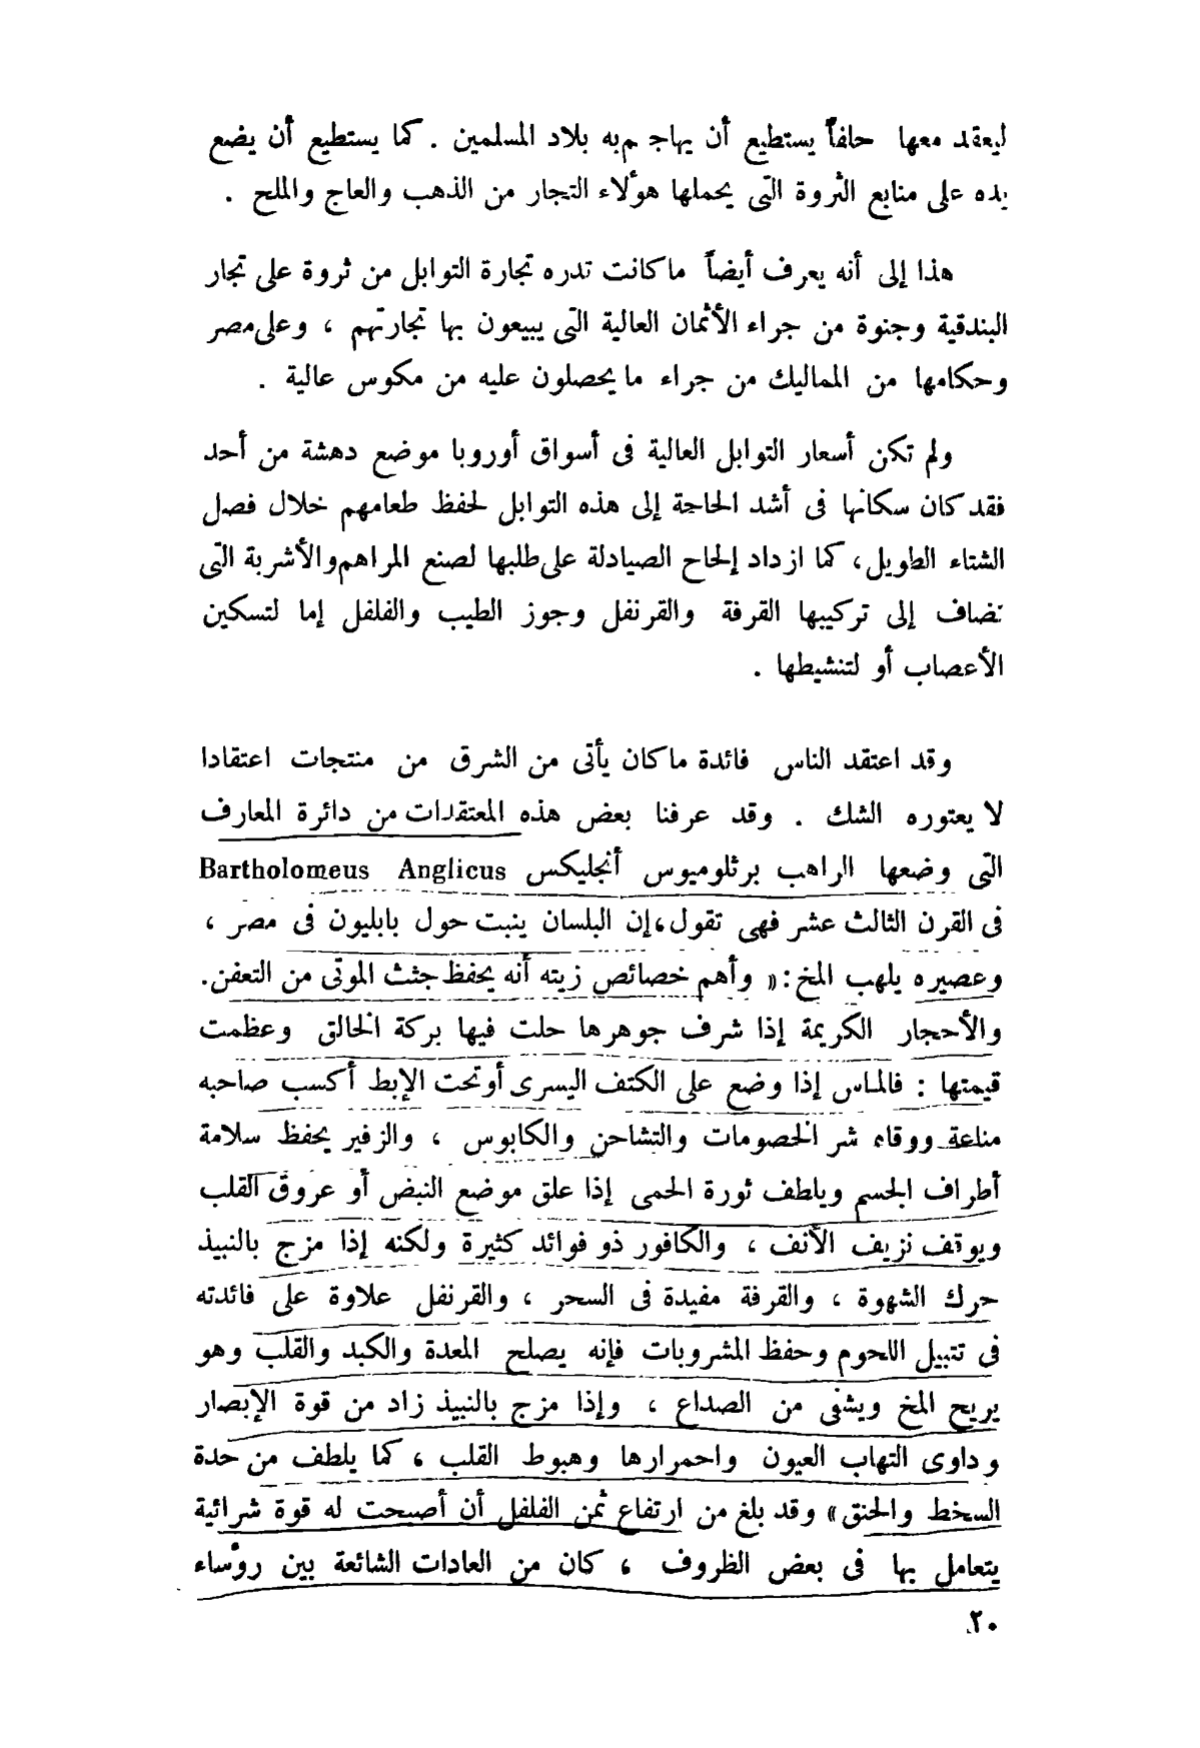 ليعقد معها حلفاً يستطيع أن يهاجم به بلاد المسلمين . كما يستطيع أن يضع
يده على منابع الثروة التى يحملها هؤلاء التجار من الذهب والعاج والملح .
هذا إلى أنه يعرف أيضاً ماكانت تدره تجارة التوابل من ثروة على تجار
البندقية وجنوة من جراء الأثمان العالية التى يبيعون بها تجارتهم ، وعلى مصر
وحكامها من المماليك من جراء ما يحصلون عليه من مكوس عالية .
ولم تكن أسعار التوابل العالية فى أسواق أوروبا موضع دهشة من أحد
فقد كان سكانها فى أشد الحاجة إلى هذه التوابل لحفظ طعامهم خلال فصل
الشتاء الطويل، كما ازداد إلحاح الصيادلة على طلبها لصنع المراهم والأشربة التى
تضاف إلى تركيبها القرفة والقرنفل وجوز الطيب والفلفل إما لتسكين
الأعصاب أو لتنشيطها .
وقد اعتقد الناس فائدة ماكان يأتى من الشرق من منتجات اعتقادا
لا يعتوره الشك . وقد عرفنا بعض هذه المعتقدات من دائرة المعارف
التى وضعها الراهب برثلوميوس أنجليكس Bartholomeus Anglicus
فى القرن الثالث عشر فهى تقول، إن البلسان ينبت حول بابليون فى مصر ،
وعصيره يلهب المخ : « وأهم خصائص زيته أنه يحفظ جثث الموتى من التعفن.
والأحجار الكريمة إذا شرف جوهرها حلت فيها بركة الخالق وعظمت
قيمتها : فالماس إذا وضع على الكتف اليسرى أو تحت الإبط أكسب صاحبه
مناعة ووقاه شر الخصومات والتشاحن والكابوس ، والزفير يحفظ سلامة
أطراف الجسم ويلطف ثورة الحمى إذا علق موضع النبض أو عروق القلب
ويوقف نزيف الأنف ، والكافور ذو فوائد كثيرة ولكنه إذا مزج بالنبيذ
حرك الشهوة ، والقرفة مفيدة فى السحر ، والقرنفل علاوة على فائدته
فى تتبيل اللحوم وحفظ المشروبات فإنه يصلح المعدة والكبد والقلب وهو
يريح المخ ويشفى من الصداع ، وإذا مزج بالنبيذ زاد من قوة الإبصار
وداوى التهاب العيون واحمرارها وهبوط القلب ، كما يلطف من حدة
السخط والحنق » وقد بلغ من ارتفاع ثمن الفلفل أن أصبحت له قوة شرائية
يتعامل بها فى بعض الظروف ، كان من العادات الشائعة بين رؤساء
٢٠